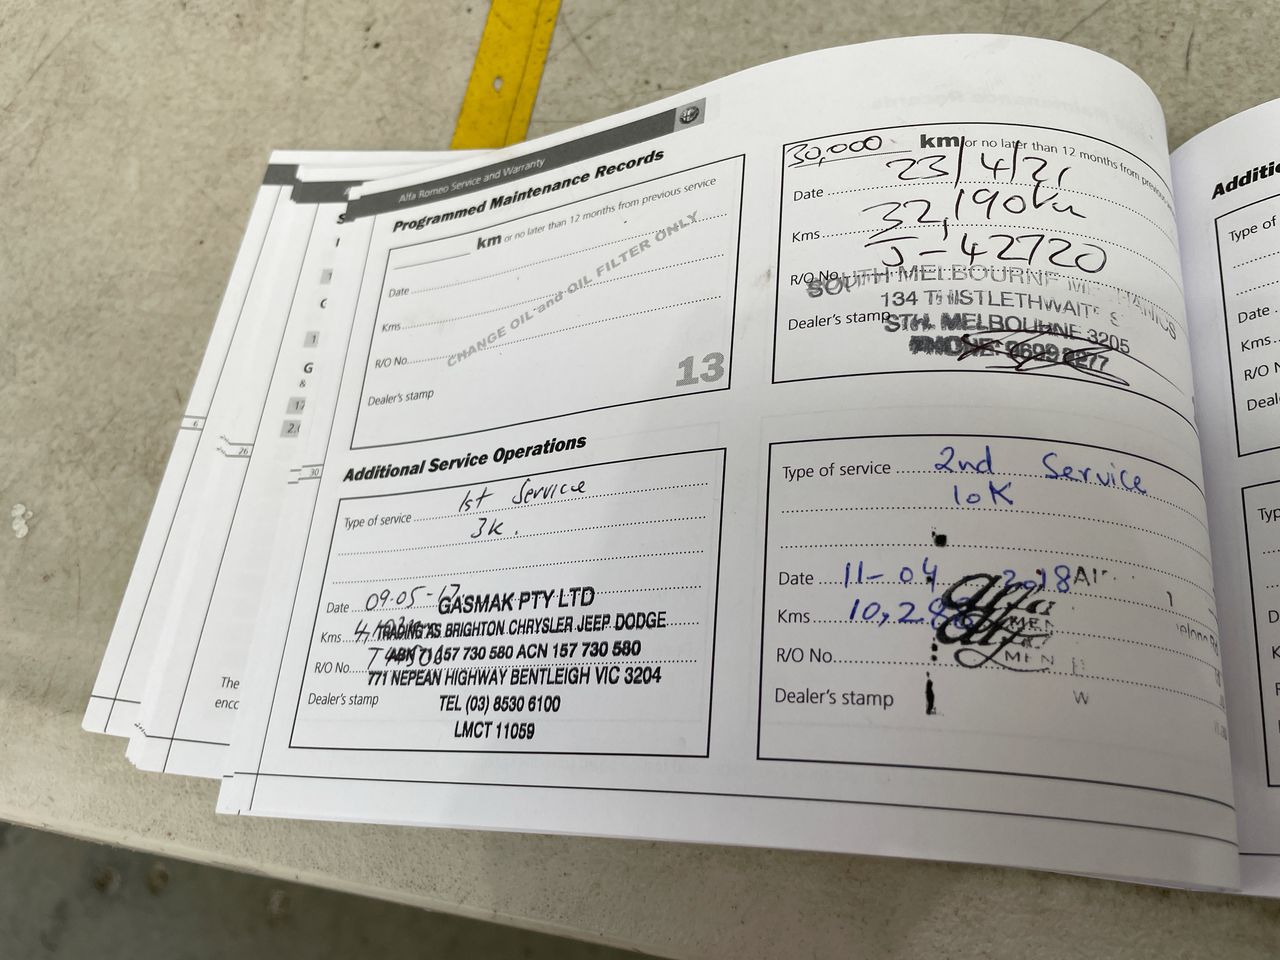 Alfa Romeo Service and Warranty
Programmed Maintenance Records
km or no later than 12 months from previous service
Date
Kms
R/O No.
Dealer's stamp
CHANGE OIL and OIL FILTER ONLY
13
30,000 km or no later than 12 months from previous
Date 23/4/21
Kms 32,190km
R/O No. J-42720
Dealer's stamp
SOUTH MELBOURNE
134 THISTLETHWAITE S
STH. MELBOURNE 3205
PHONE:
Additional Service Operations
Type of service 1st Service
3k.
Date 09-05-17
Kms
R/O No.
Dealer's stamp
GASMAK PTY LTD
TRADING AS BRIGHTON CHRYSLER JEEP DODGE
ABN 71 157 730 580 ACN 157 730 580
771 NEPEAN HIGHWAY BENTLEIGH VIC 3204
TEL (03) 8530 6100
LMCT 11059
Type of service 2nd Service
10K
Date 11-04 2018
Kms 10,28
R/O No.
Dealer's stamp
alfa
MEN
MEN
W
Additi
Type of
Date
Kms
R/O N
Deal
6
26
30
The
enco